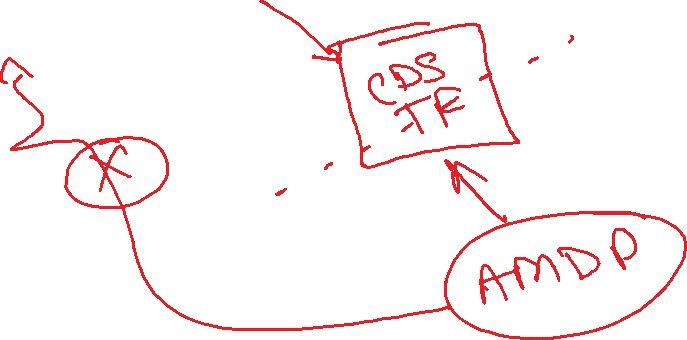 CDS
TF
X
AMDP